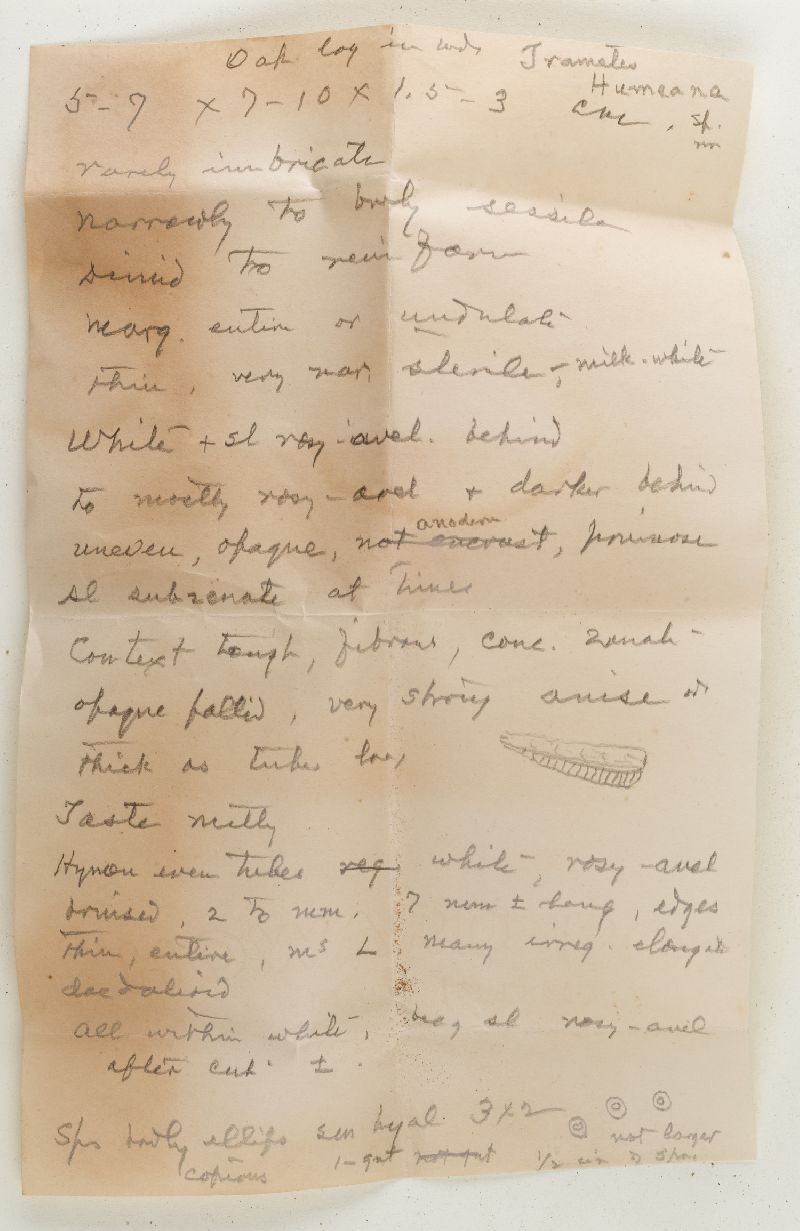 Oak log in wds Trametes
Humeana
5-7 x 7-10 x 1.5-3 sp.
rarely imbricate
narrowly to brdly sessile
Dimid to reniform
Marg. entire or undulate
thin, very nar, sterile, milk-white
White + sl rosy-avel. behind
to mostly rosy-avel + darker behind
anoderm
uneven, opaque, not encrust, pruinose
sl subzonate at times
Context tough, fibrous, conc. zonate
opaque pallid, very strong anise od
thick as tube
Taste nutty
Hymen even tubes reg white, rosy-avel
bruised, 2 to mm. 7 mm ± long, edges
thin, entire, many irreg. elongate
daedaleoid
all within white, sl rosy-avel
after cut ±
Sps brdly ellips sm hyal 3x2
1-gut not gut not larger
copious 1/2 spore